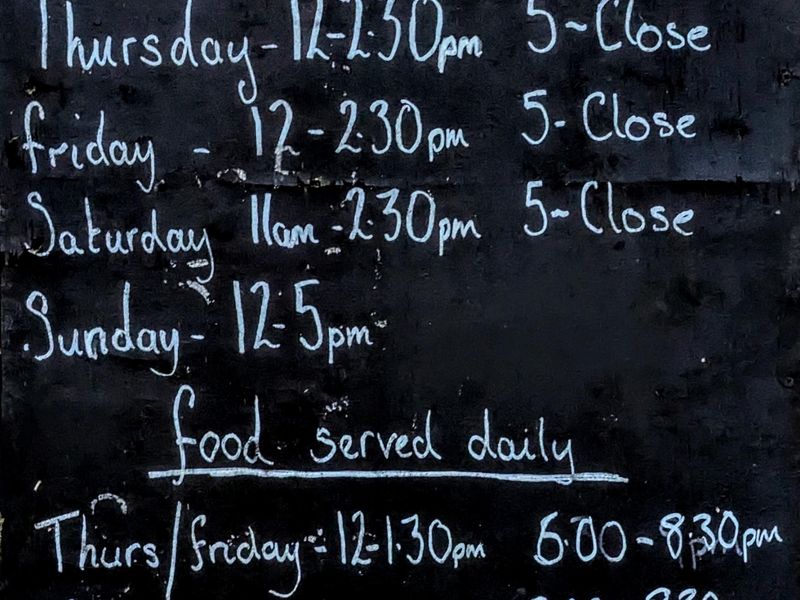 Thursday - 12-2.30pm 5~Close
friday - 12 - 2.30pm 5- Close
Saturday 11am - 2.30pm 5~ Close
Sunday - 12-5pm
food served daily
Thurs/friday - 12-1.30pm 6.00 - 8.30pm